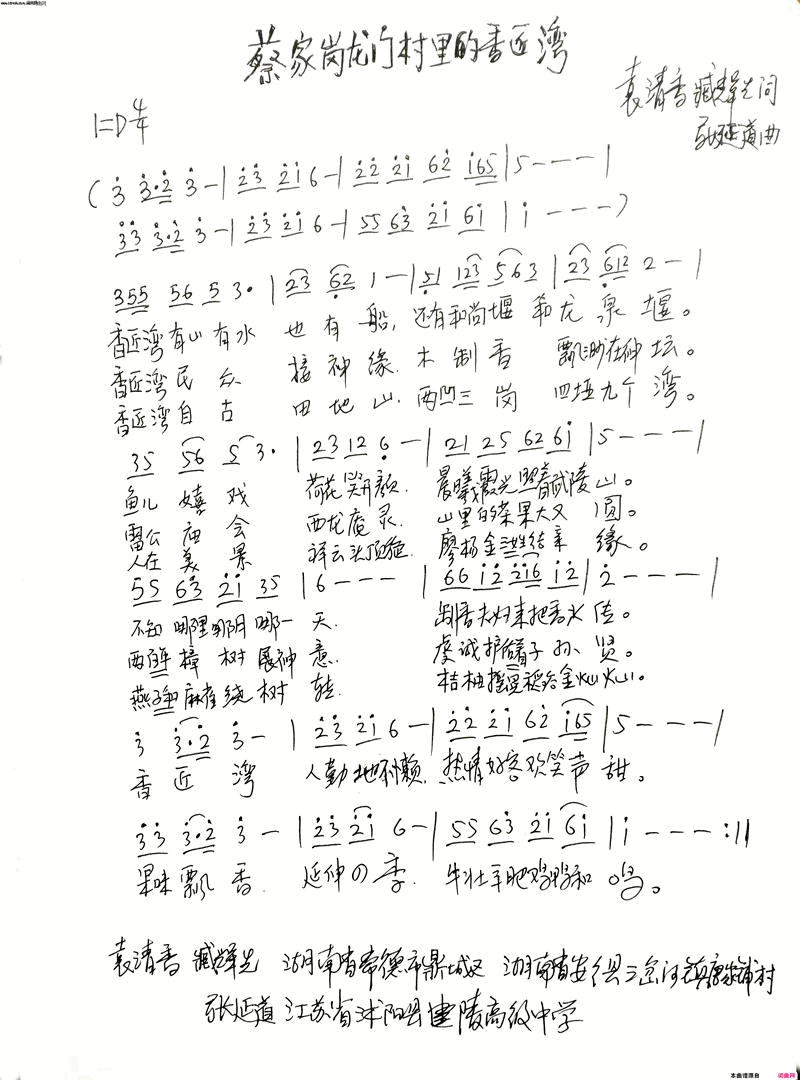 蔡家岗龙门村里的香匠湾
1=D 4/4
袁清香 臧辉先 词
张延道 曲
( 3 3·2 3 - | 23 21 6 - | 22 21 62 165 | 5 - - - |
33 3·2 3 - | 23 21 6 - | 55 63 21 61 | 1 - - - )
355 56 53· | 23 62 1 - | 51 123 563 | 23 612 2 - |
香匠湾有山有水 也有船, 还有和尚堰 和龙泉堰。
香匠湾民众 接神缘. 木制香 飘渺在神坛。
香匠湾自古 田地山. 两凹三岗 四垭九个湾。
35 56 53· | 23 12 6 - | 21 25 62 61 | 5 - - - |
鱼儿嬉戏 荷花笑开颜. 晨曦霞光照着武陵山。
雷公庙会 西龙庵灵. 山里的茶果大又圆。
人在美景 祥云头顶施. 廖杨金洪结亲缘。
55 63 21 35 | 6 - - - | 66 12 216 12 | 2 - - - |
不知哪里哪阴哪一天. 制香夫妇来把香火传。
西樟树展神意. 虔诚护着子孙贤。
燕子和麻雀绕树转. 桔柚摇晃稻谷金灿灿。
3 3·2 3 - | 23 21 6 - | 22 21 62 165 | 5 - - - |
香匠湾 人勤地不懒. 热情好客欢笑声甜。
33 3·2 3 - | 23 21 6 - | 55 63 21 61 | 1 - - - :||
果味飘香. 延伸四季. 牛壮羊肥鸡鸭和鸣。
袁清香 臧辉先 湖南省常德市鼎城区 湖南省安乡县三岔河镇康家铺村
张延道 江苏省沭阳县建陵高级中学
本曲谱源自 词曲网